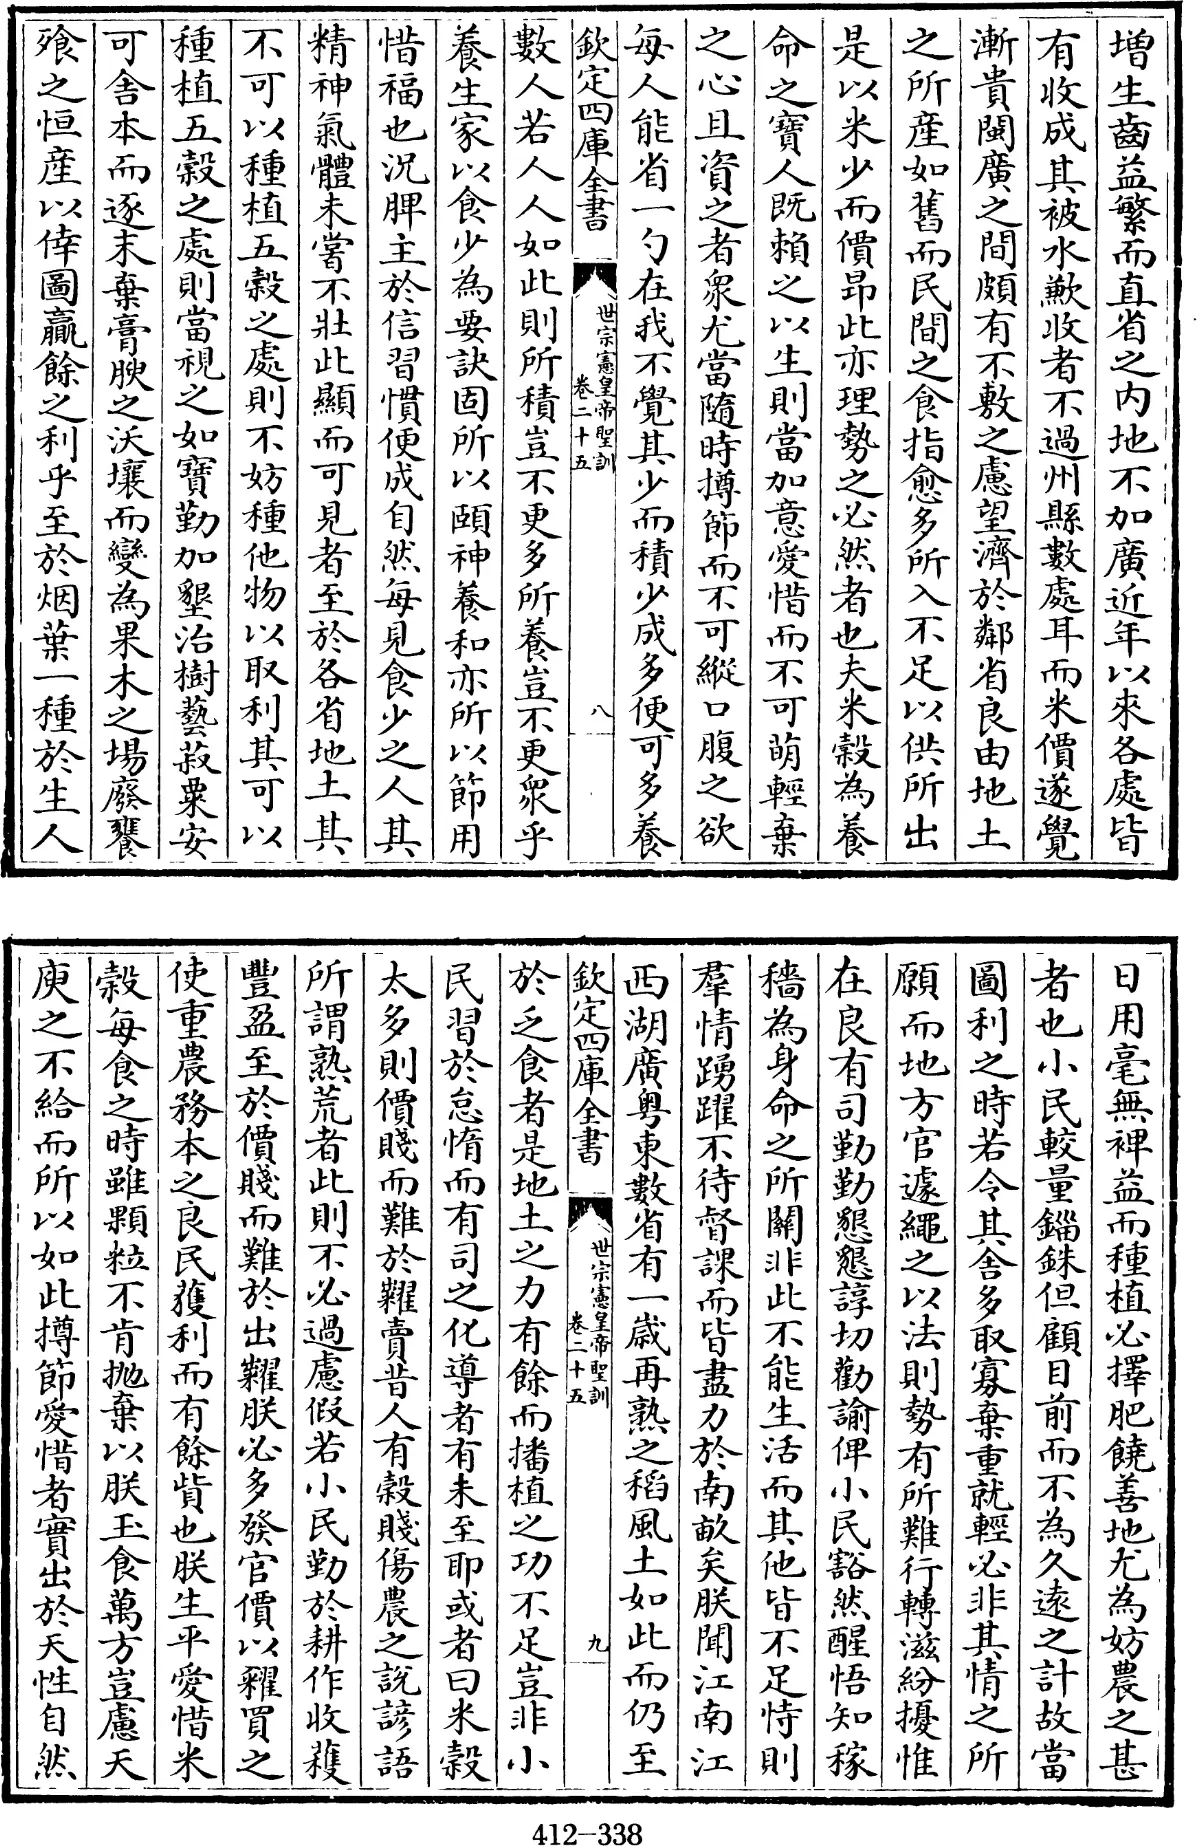 增生齒益繁而直省之内地不加廣近年以來各處皆
有收成其被水歉收者不過州縣數處耳而米價遂覺
漸貴閩廣之間頗有不敷之慮望濟於鄰省良由地土
之所産如舊而民間之食指愈多所入不足以供所出
是以米少而價昂此亦理勢之必然者也夫米穀為養
命之寶人既賴之以生則當加意愛惜而不可萌輕棄
之心且資之者衆尤當隨時撙節而不可縱口腹之欲
每人能省一勺在我不覺其少而積少成多便可多養
欽定四庫全書
世宗憲皇帝聖訓
卷二十五
八
數人若人人如此則所積豈不更多所養豈不更衆乎
養生家以食少為要訣固所以頤神養和亦所以節用
惜福也況脾主於信習慣便成自然每見食少之人其
精神氣體未嘗不壯此顯而可見者至於各省地土其
不可以種植五穀之處則不妨種他物以取利其可以
種植五穀之處則當視之如寶勤加墾治樹藝菽粟安
可舎本而逐末棄膏腴之沃壤而變為果木之場廢饔
飱之恒産以倖圖贏餘之利乎至於烟葉一種於生人
日用毫無裨益而種植必擇肥饒善地尤為妨農之甚
者也小民較量錙銖但顧目前而不為久遠之計故當
圖利之時若令其舎多取寡棄重就輕必非其情之所
願而地方官遽繩之以法則勢有所難行轉滋紛擾惟
在良有司勤勤懇懇諄切勸諭俾小民豁然醒悟知稼
穡為身命之所關非此不能生活而其他皆不足恃則
羣情踴躍不待督課而皆盡力於南畝矣朕聞江南江
西湖廣粵東數省有一歲再熟之稻風土如此而仍至
欽定四庫全書
世宗憲皇帝聖訓
卷二十五
九
於乏食者是地土之力有餘而播植之功不足豈非小
民習於怠惰而有司之化導者有未至耶或者曰米穀
太多則價賤而難於糶賣昔人有穀賤傷農之說諺語
所謂熟荒者此則不必過慮假若小民勤於耕作收穫
豐盈至於價賤而難於出糶朕必多發官價以糴買之
使重農務本之良民獲利而有餘貲也朕生平愛惜米
穀每食之時雖顆粒不肯抛棄以朕玉食萬方豈慮天
庾之不給而所以如此撙節愛惜者實出於天性自然
412-338